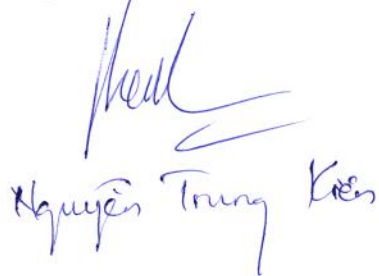 Nguyễn Trung Kiên